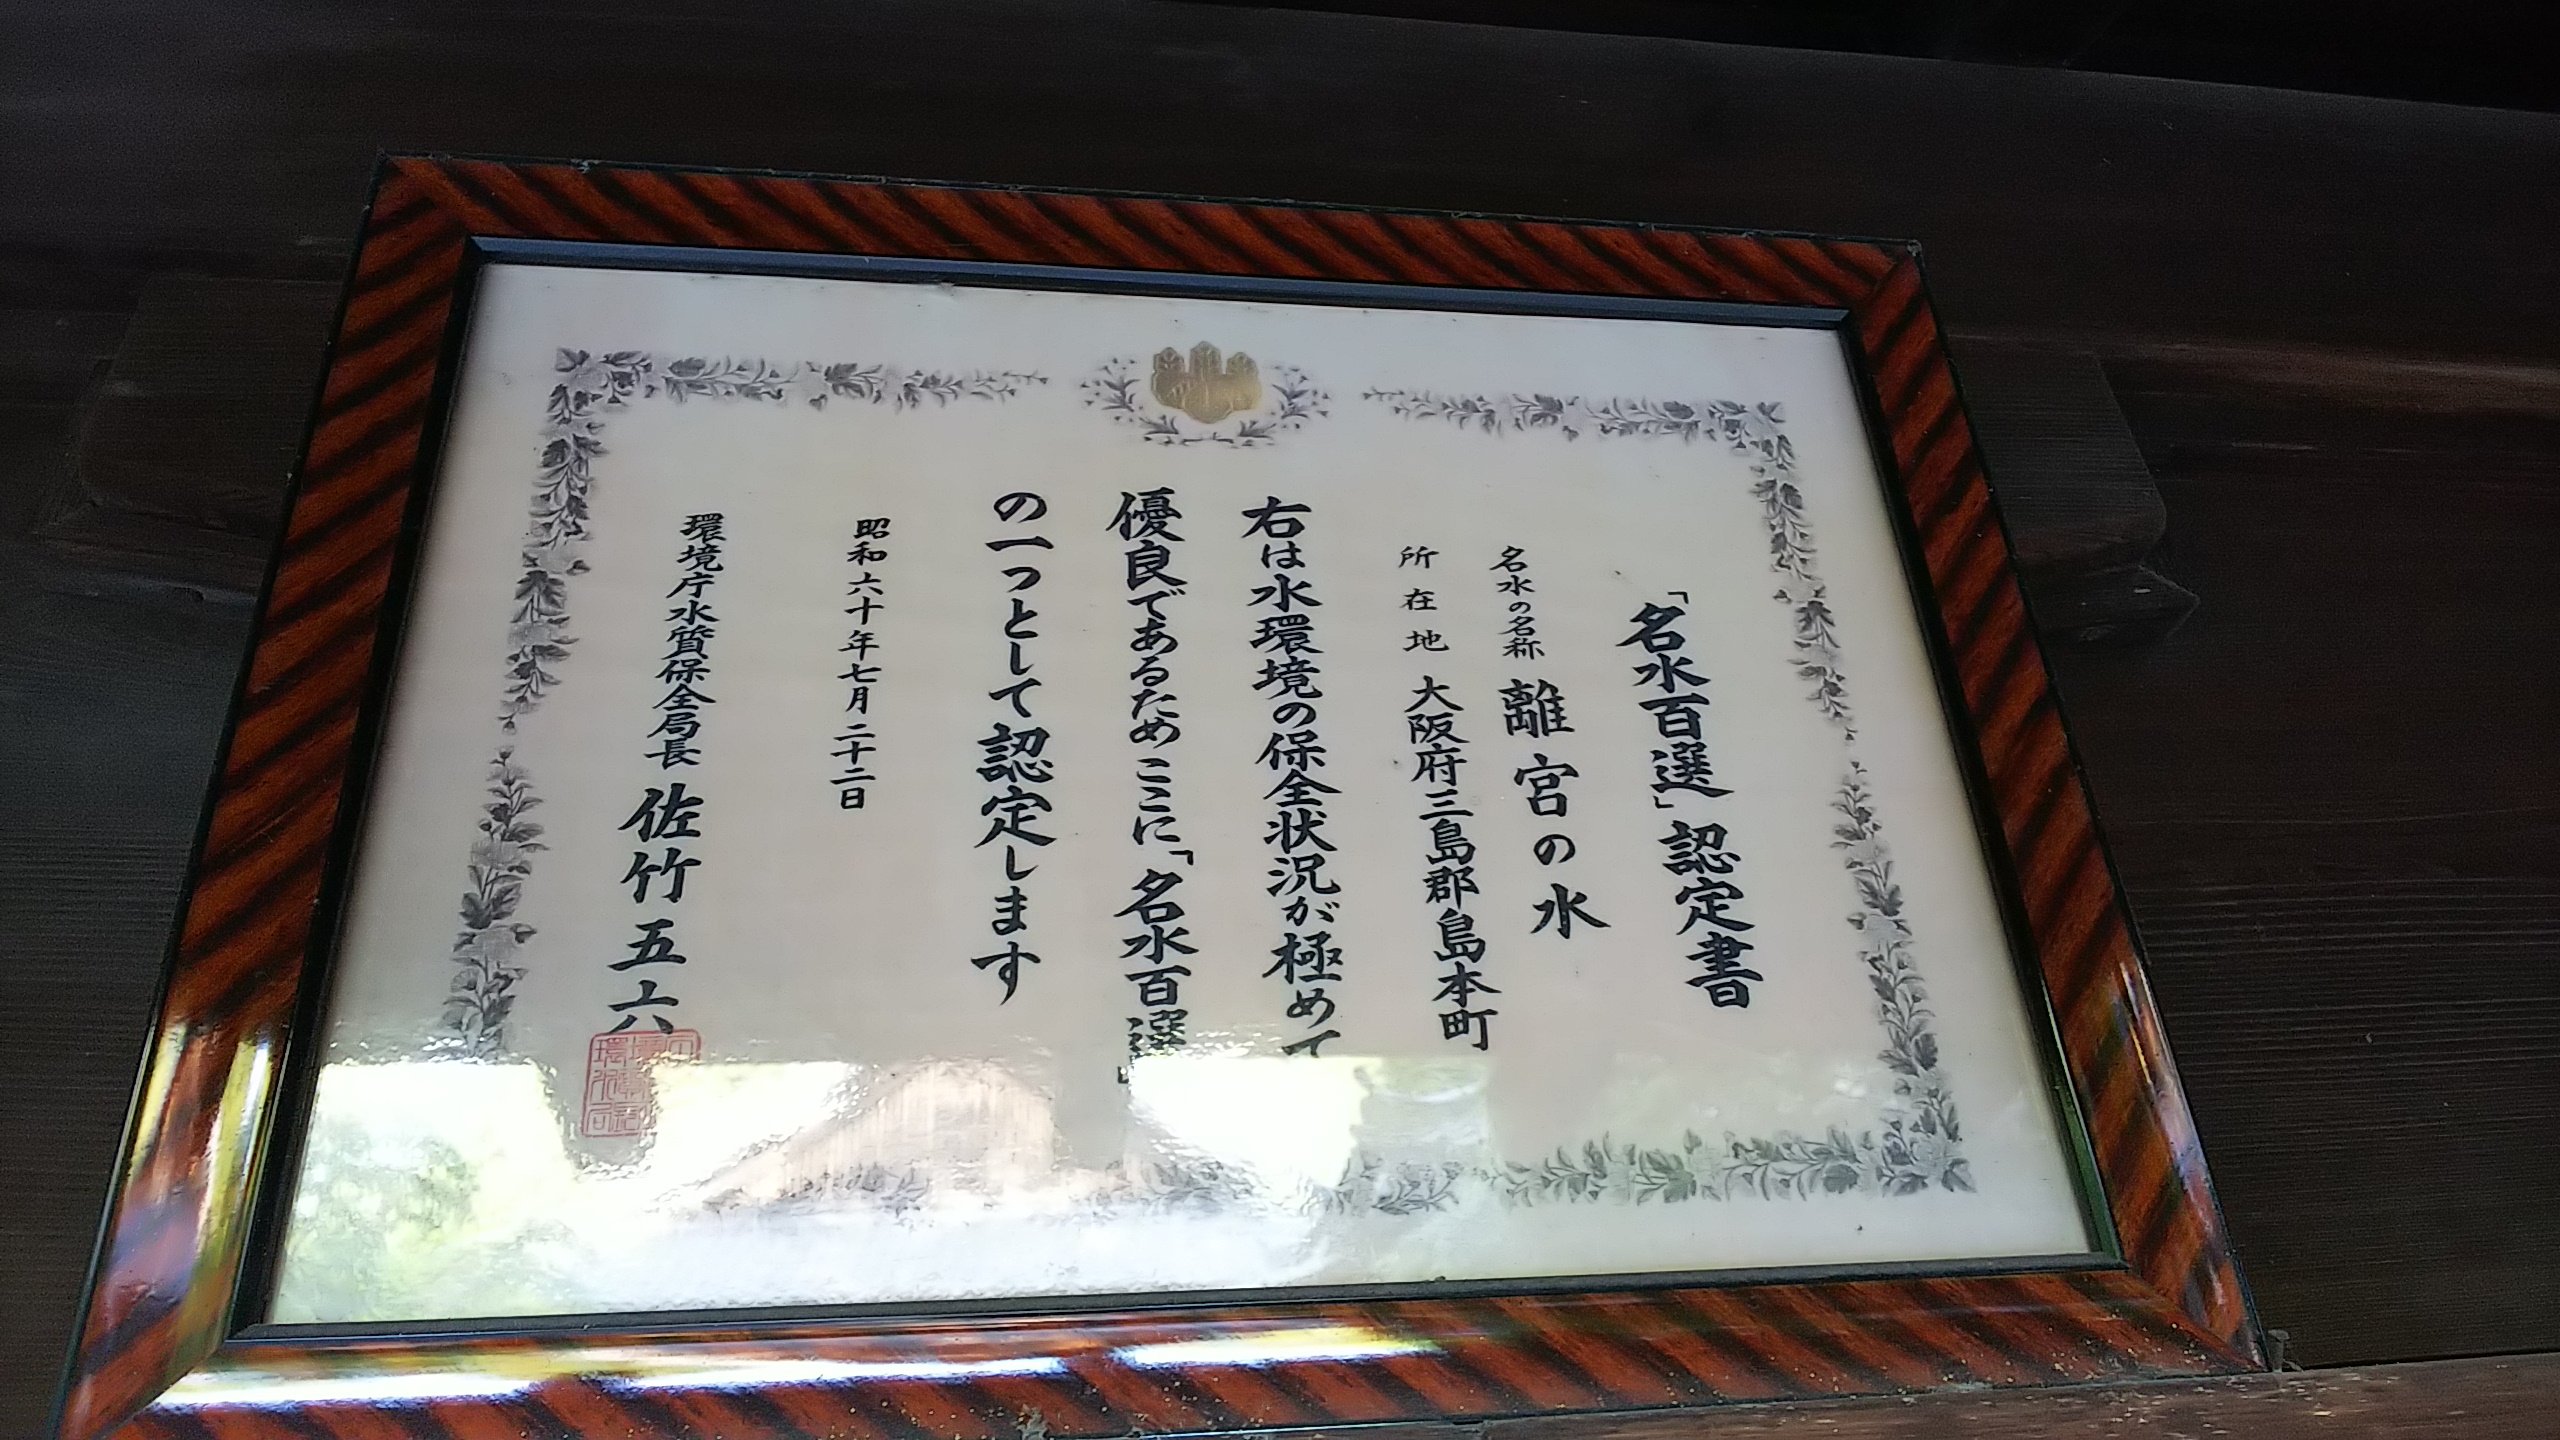 「名水百選」認定書
名水の名称 離宮の水
所在地 大阪府三島郡島本町
右は水環境の保全状況が極めて
優良であるためここに「名水百選」
の一つとして認定します
昭和六十年七月二十二日
環境庁水質保全局長 佐竹五六